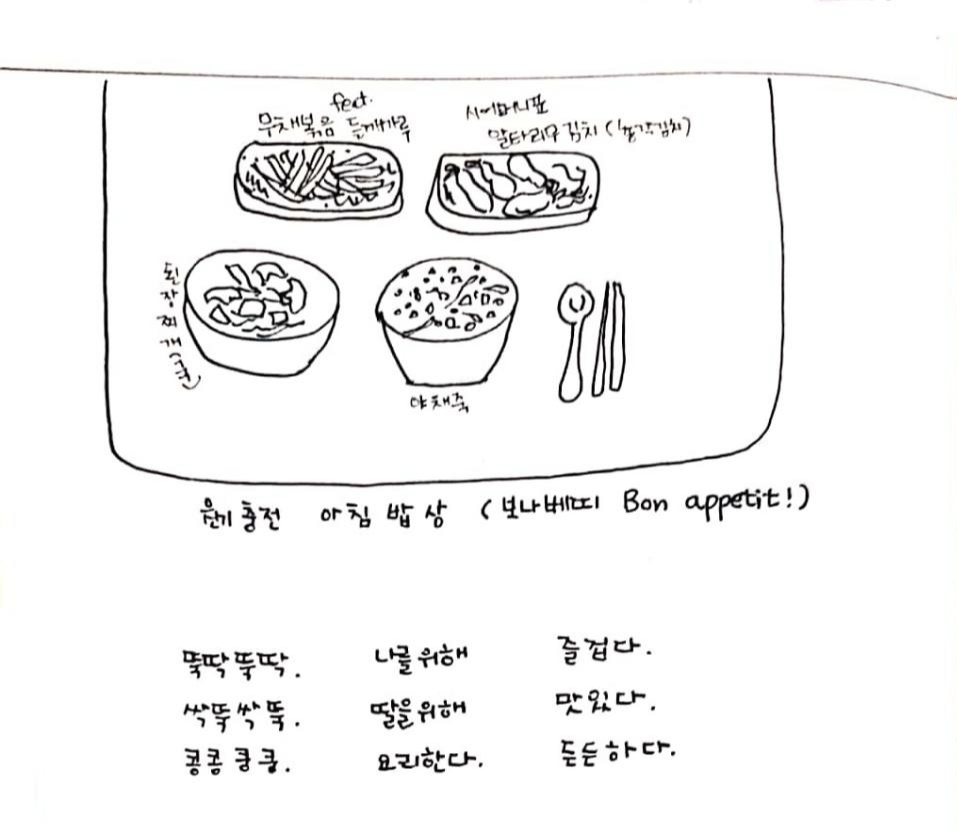 feat.
무채볶음 들깨가루
시어머니표
알타리무김치 (총각김치)
된장찌개(국)
야채죽
원기충전 아침 밥상 (보나베띠 Bon appetit!)
뚝딱뚝딱.
싹뚝싹뚝.
콩콩쿵쿵.
나를위해
딸을위해
요리한다.
즐겁다.
맛있다.
든든하다.